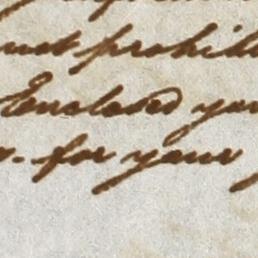 not prohibi
Enclosed you
for your